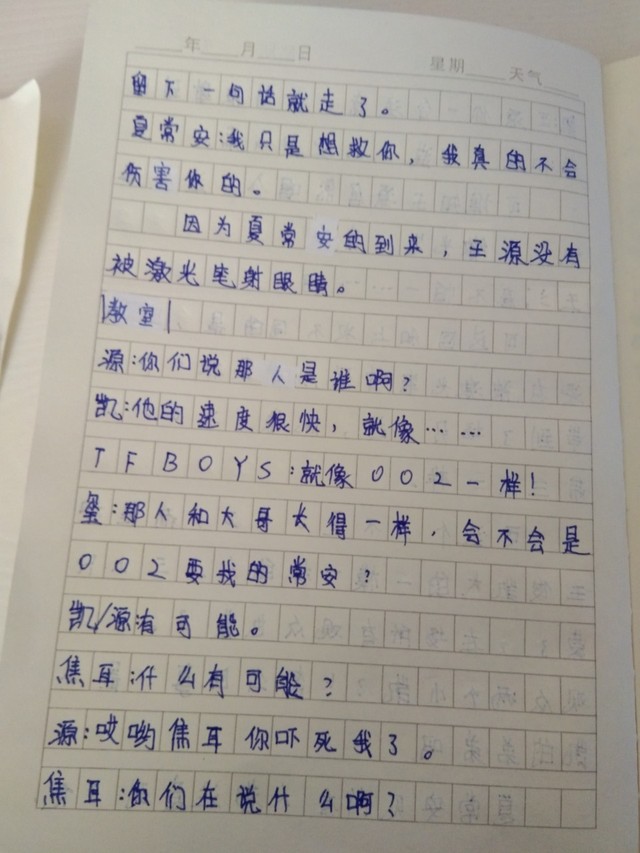 年 月 日 星期 天气
留下一句话就走了。
夏常安:我只是想救你，我真的不会
伤害你的。
因为夏常安的到来，王源没有
被激光笔射眼睛。
|教室|
源:你们说那人是谁啊?
凯:他的速度很快，就像……
TFBOYS:就像002一样!
玺:那人和大哥长得一样，会不会是
002要找的常安?
凯/源有可能。
焦耳:什么有可能?
源:哎哟焦耳你吓死我了。
焦耳:你们在说什么啊?